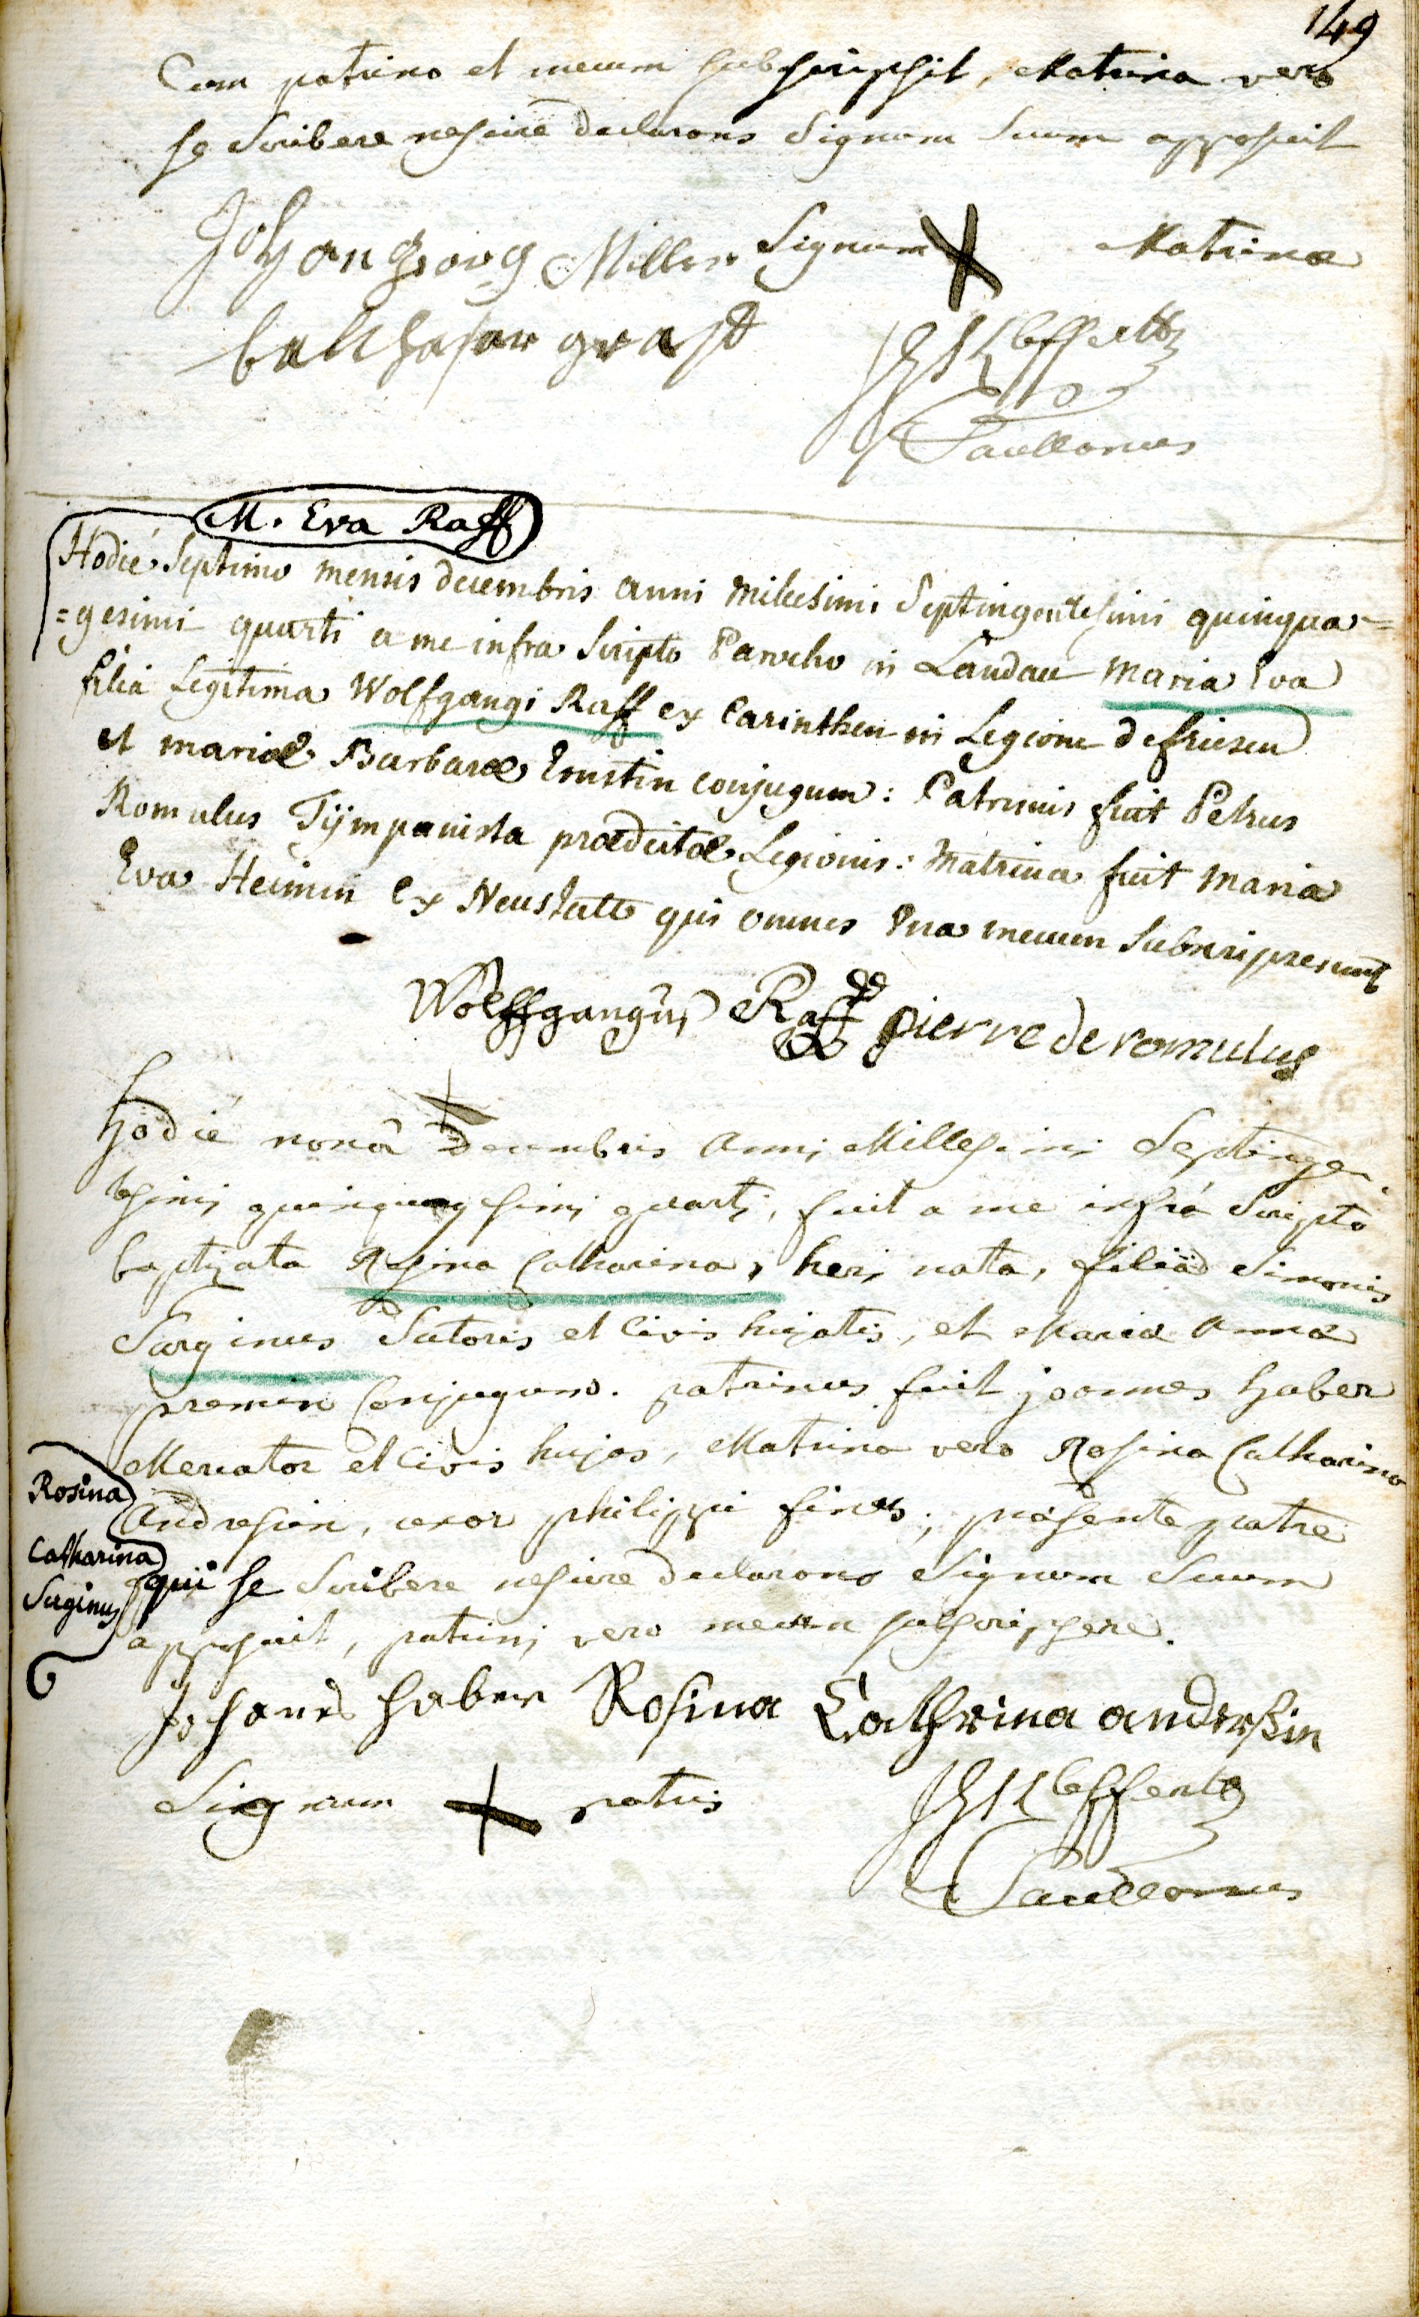 149
Cum patrino et mecum subscripsit, Matrina vero
se Scribere nescire declarans Signum Suum apposuit
Johan georg Miller Signum X Matrinæ
balthasar grast
M. Eva Raff
Hodié Septimo mensis decembris anni milesimi Septingentesimi quinqua=
=gesimi quarti a me infra Scripto Parocho in Landau Maria Eva
filia Legitima Wolfgangi Raff ex Carinthen in Legione de friesen
et mariæ Barbaræ Ernstin conjugum: Patrinus fuit Petrus
Romulus Tÿmpanista prædictæ Legionis: Matrina fuit Maria
Eva Heimin ex Neustatt qui omnes Una mecum Subscripserunt
Wolffgangus Raff pierre de romulus
hodié nonâ Decembris anni Millesimi Septinge
tesimi quinquagesimi quarti, fuit a me infrá Scripto
baptizata Rosina Catharina, heri nata, filia Simonis
Sarginus Sutoris et Civis hujatis, et Maria Anna
premin Conjugum. patrinus fuit joannes haber
Mercator et Civis hujas, Matrina vero Rosina Catharina
Rosina
Andresin, uxor philippi finck; præsente patre
Catharina
qui se Scribere nescire declarans Signum Suum
Surginus
apposuit, patrini vero mecum subscripsere.
Johanes haber Rosina Cathrina anderßin
Signum + patris